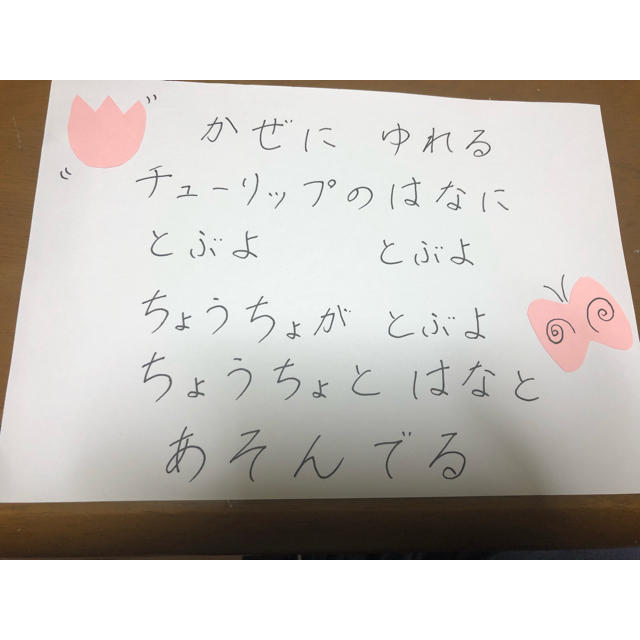 かぜに ゆれる
チューリップのはなに
とぶよ とぶよ
ちょうちょが とぶよ
ちょうちょと はなと
あそんでる